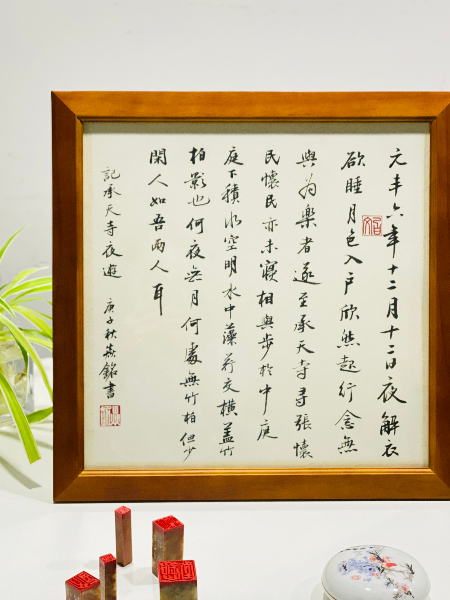 元丰六年十二月十二日夜解衣
欲睡月色入户欣然起行念無
與為樂者遂至承天寺尋張懷
民懷民亦未寢相與步於中庭
庭下積水空明水中藻荇交横盖竹
柏影也何夜無月何處無竹柏但少
閑人如吾两人耳
記承天寺夜遊 庚子秋焱銘書